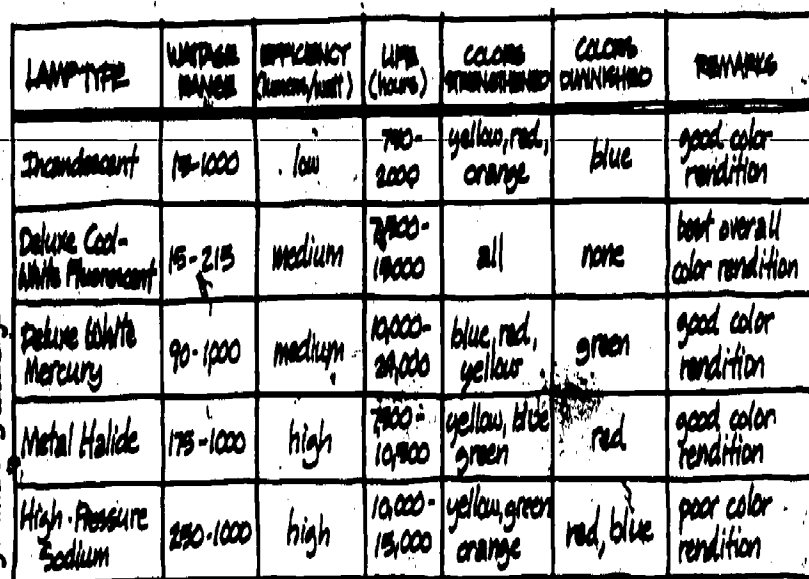 LAMP TYPE
WATTAGE RANGE
EFFICIENCY (lumens/watt)
LIFE (hours)
COLORS STRENGTHENED
COLORS DIMINISHED
REMARKS
Incandescent
15-1000
low
750-2000
yellow, red, orange
blue
good color rendition
Deluxe Cool-White Fluorescent
15-215
medium
7,500-15,000
all
none
best overall color rendition
Deluxe White Mercury
90-1000
medium
10,000-
blue, red, yellow
green
good color rendition
Metal Halide
175-1000
high
7500-10,500
yellow, blue green
red
good color rendition
High-Pressure Sodium
250-1000
high
10,000-15,000
yellow, green orange
red, blue
poor color rendition